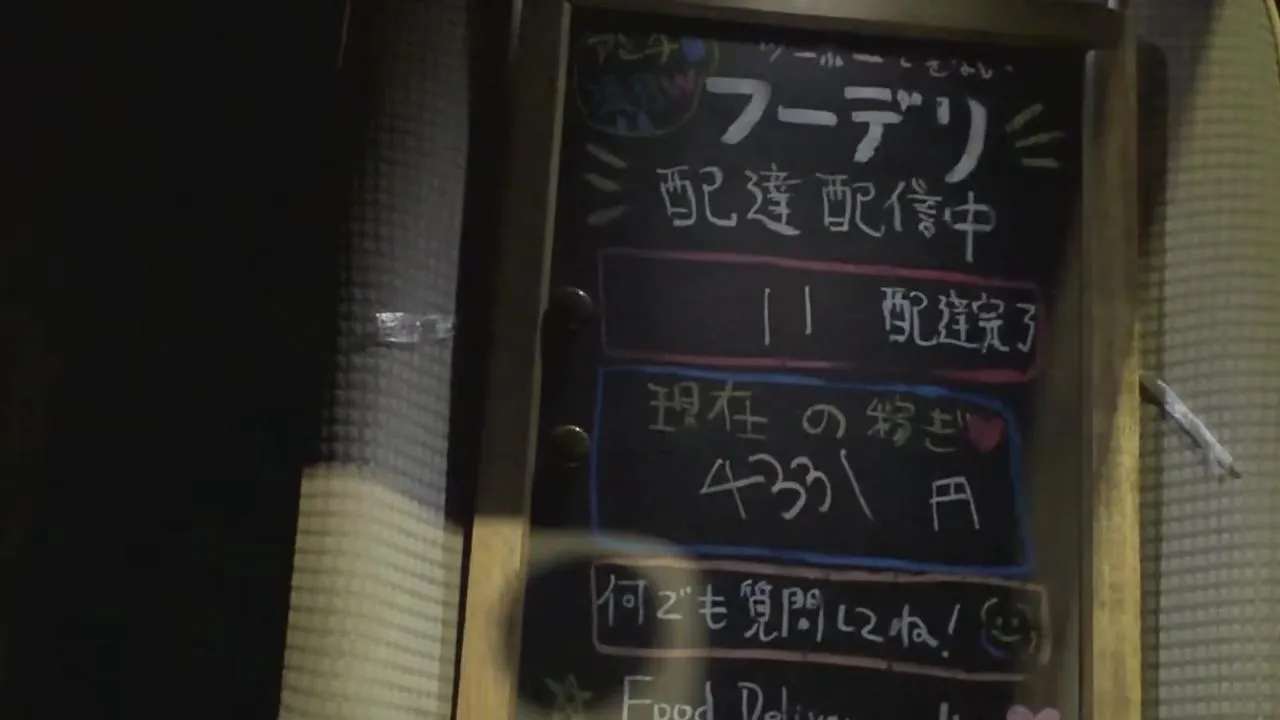 アンチ
フーデリ
配達配信中
11 配達完了
現在の稼ぎ
4331 円
何でも質問してね!
Food